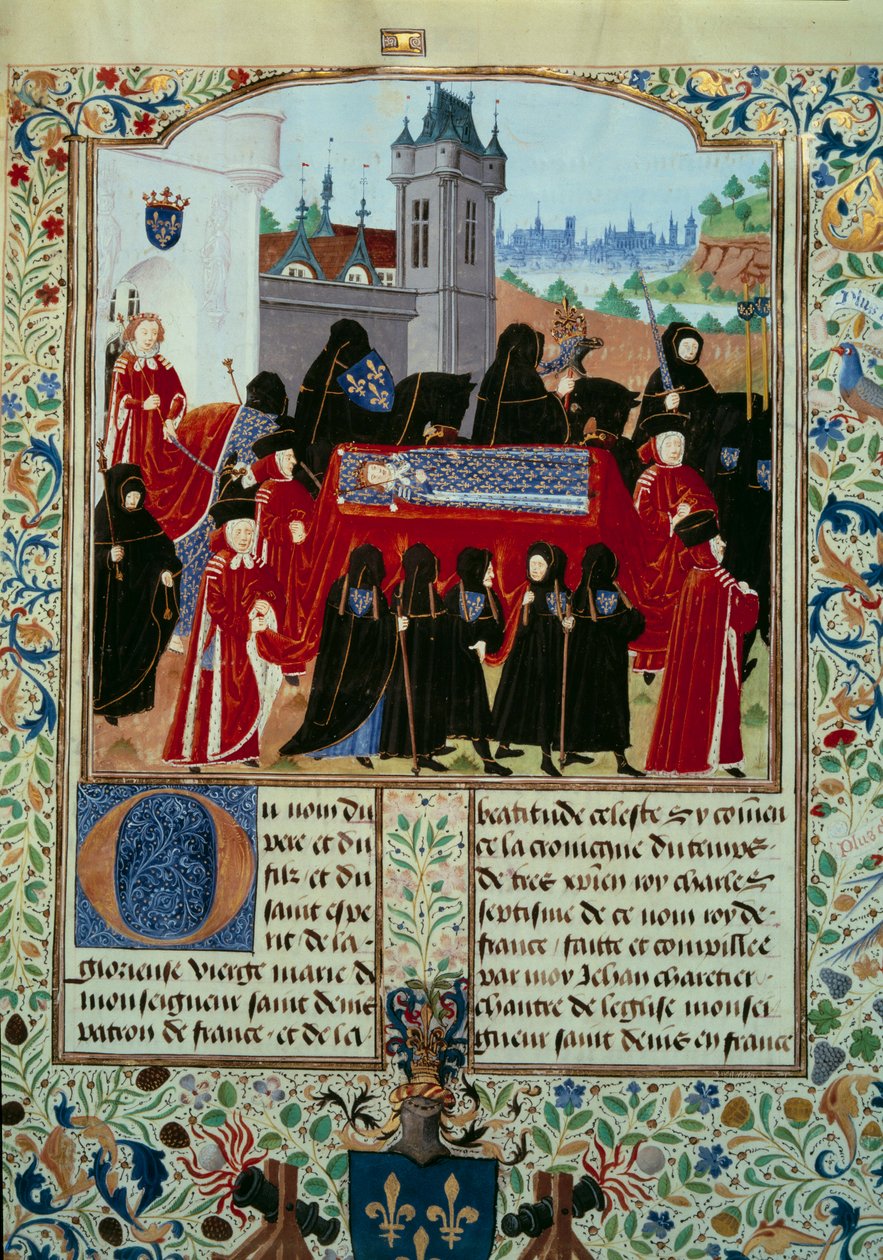 Ou nom du
pere et du
filz et du
saint espe
rit · de la ·
glorieuse vierge marie de
monseigneur saint denis
patron de france · et de la
beatitude celeste Sy com̄en
ce la cronicque du temps ·
de tres xp̄ien roy charles
septisme de ce nom roy de ·
france / faitte et compillee
par moy Jehan charetier ·
chantre de leglise monsei
gneur saint denis en france
Plus
Plus